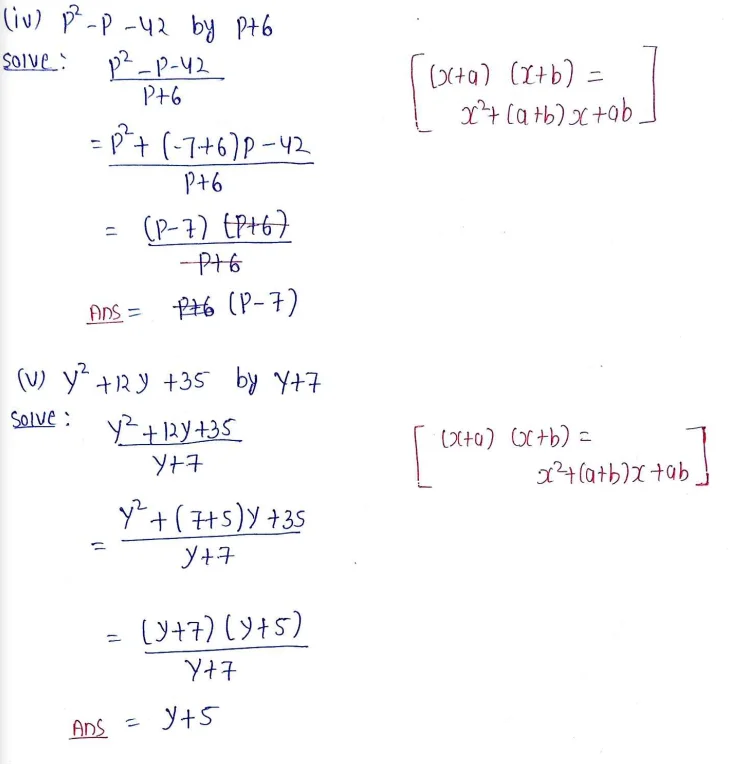 (iv) p²-p-42 by p+6
Solve: p²-p-42
p+6
[(x+a) (x+b) =
x²+(a+b)x+ab]
= p²+(-7+6)p-42
p+6
= (p-7) (p+6)
p+6
Ans = p+6 (p-7)
(v) y²+12y+35 by y+7
Solve: y²+12y+35
y+7
[(x+a) (x+b) =
x²+(a+b)x+ab]
= y²+(7+5)y+35
y+7
= (y+7)(y+5)
y+7
Ans = y+5